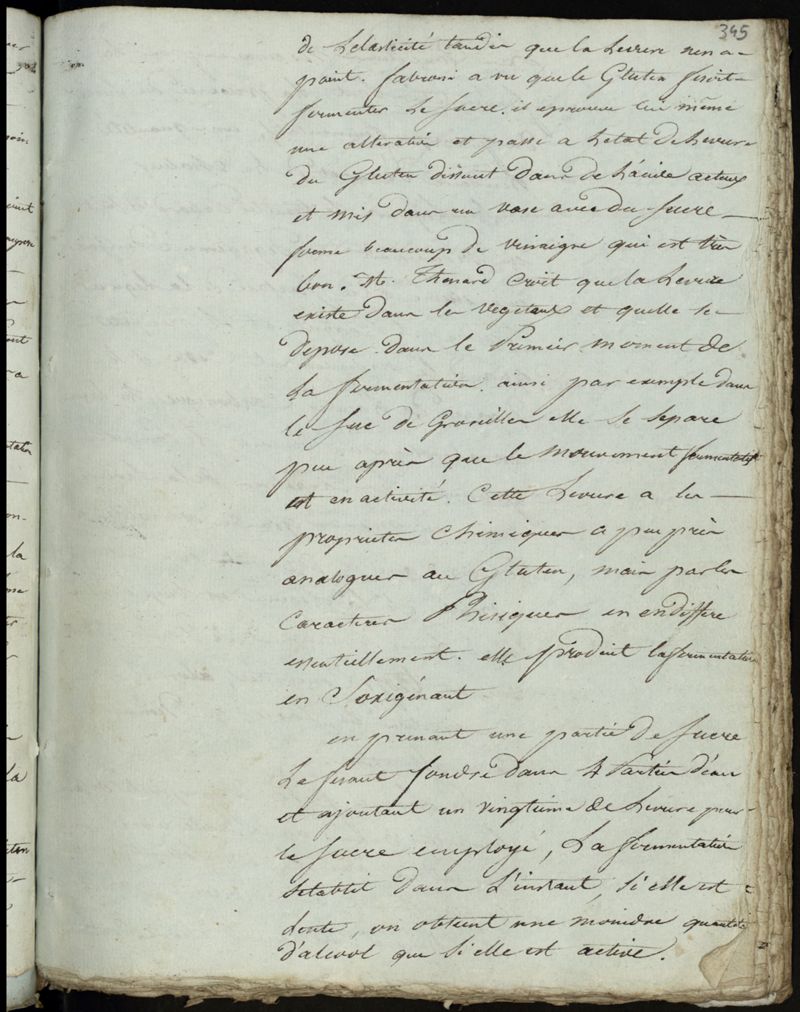 345
de Lelasticité tandis que la Levure nen a
point. fabroni a vu que le Gluten fesoit
fermenter le sucre. il eprouve lui même
une alteration et passe a letat de Levure
du Gluten dissout dans de l'acide aceteux
et mis dans un vase avec du sucre
forme beaucoup de vinaigre qui est très
bon. M. Thenard croit que la Levure
existe dans les vegetaux et quelle se
depose dans le Premier moment de
La fermentation. ainsi par exemple dans
le suc de Groseilles elle se separe
peu après que le mouvement fermentatif
est en activité. Cette Levure a les
proprietes chimiques a peu près
analogues au Gluten, mais par les
caracteres Phisiques en endiffere
essentiellement. elle produit la fermentation
en S'oxigénant
en prenant une partie de sucre
Le fesant fondre dans 4 Parties d'eau
et ajoutant un vingtieme de Levure pour
le sucre employé, La fermentation
setablit dans L'instant, si elle est
lente, on obtient une moindre quantité
d'alcool que si elle est active.